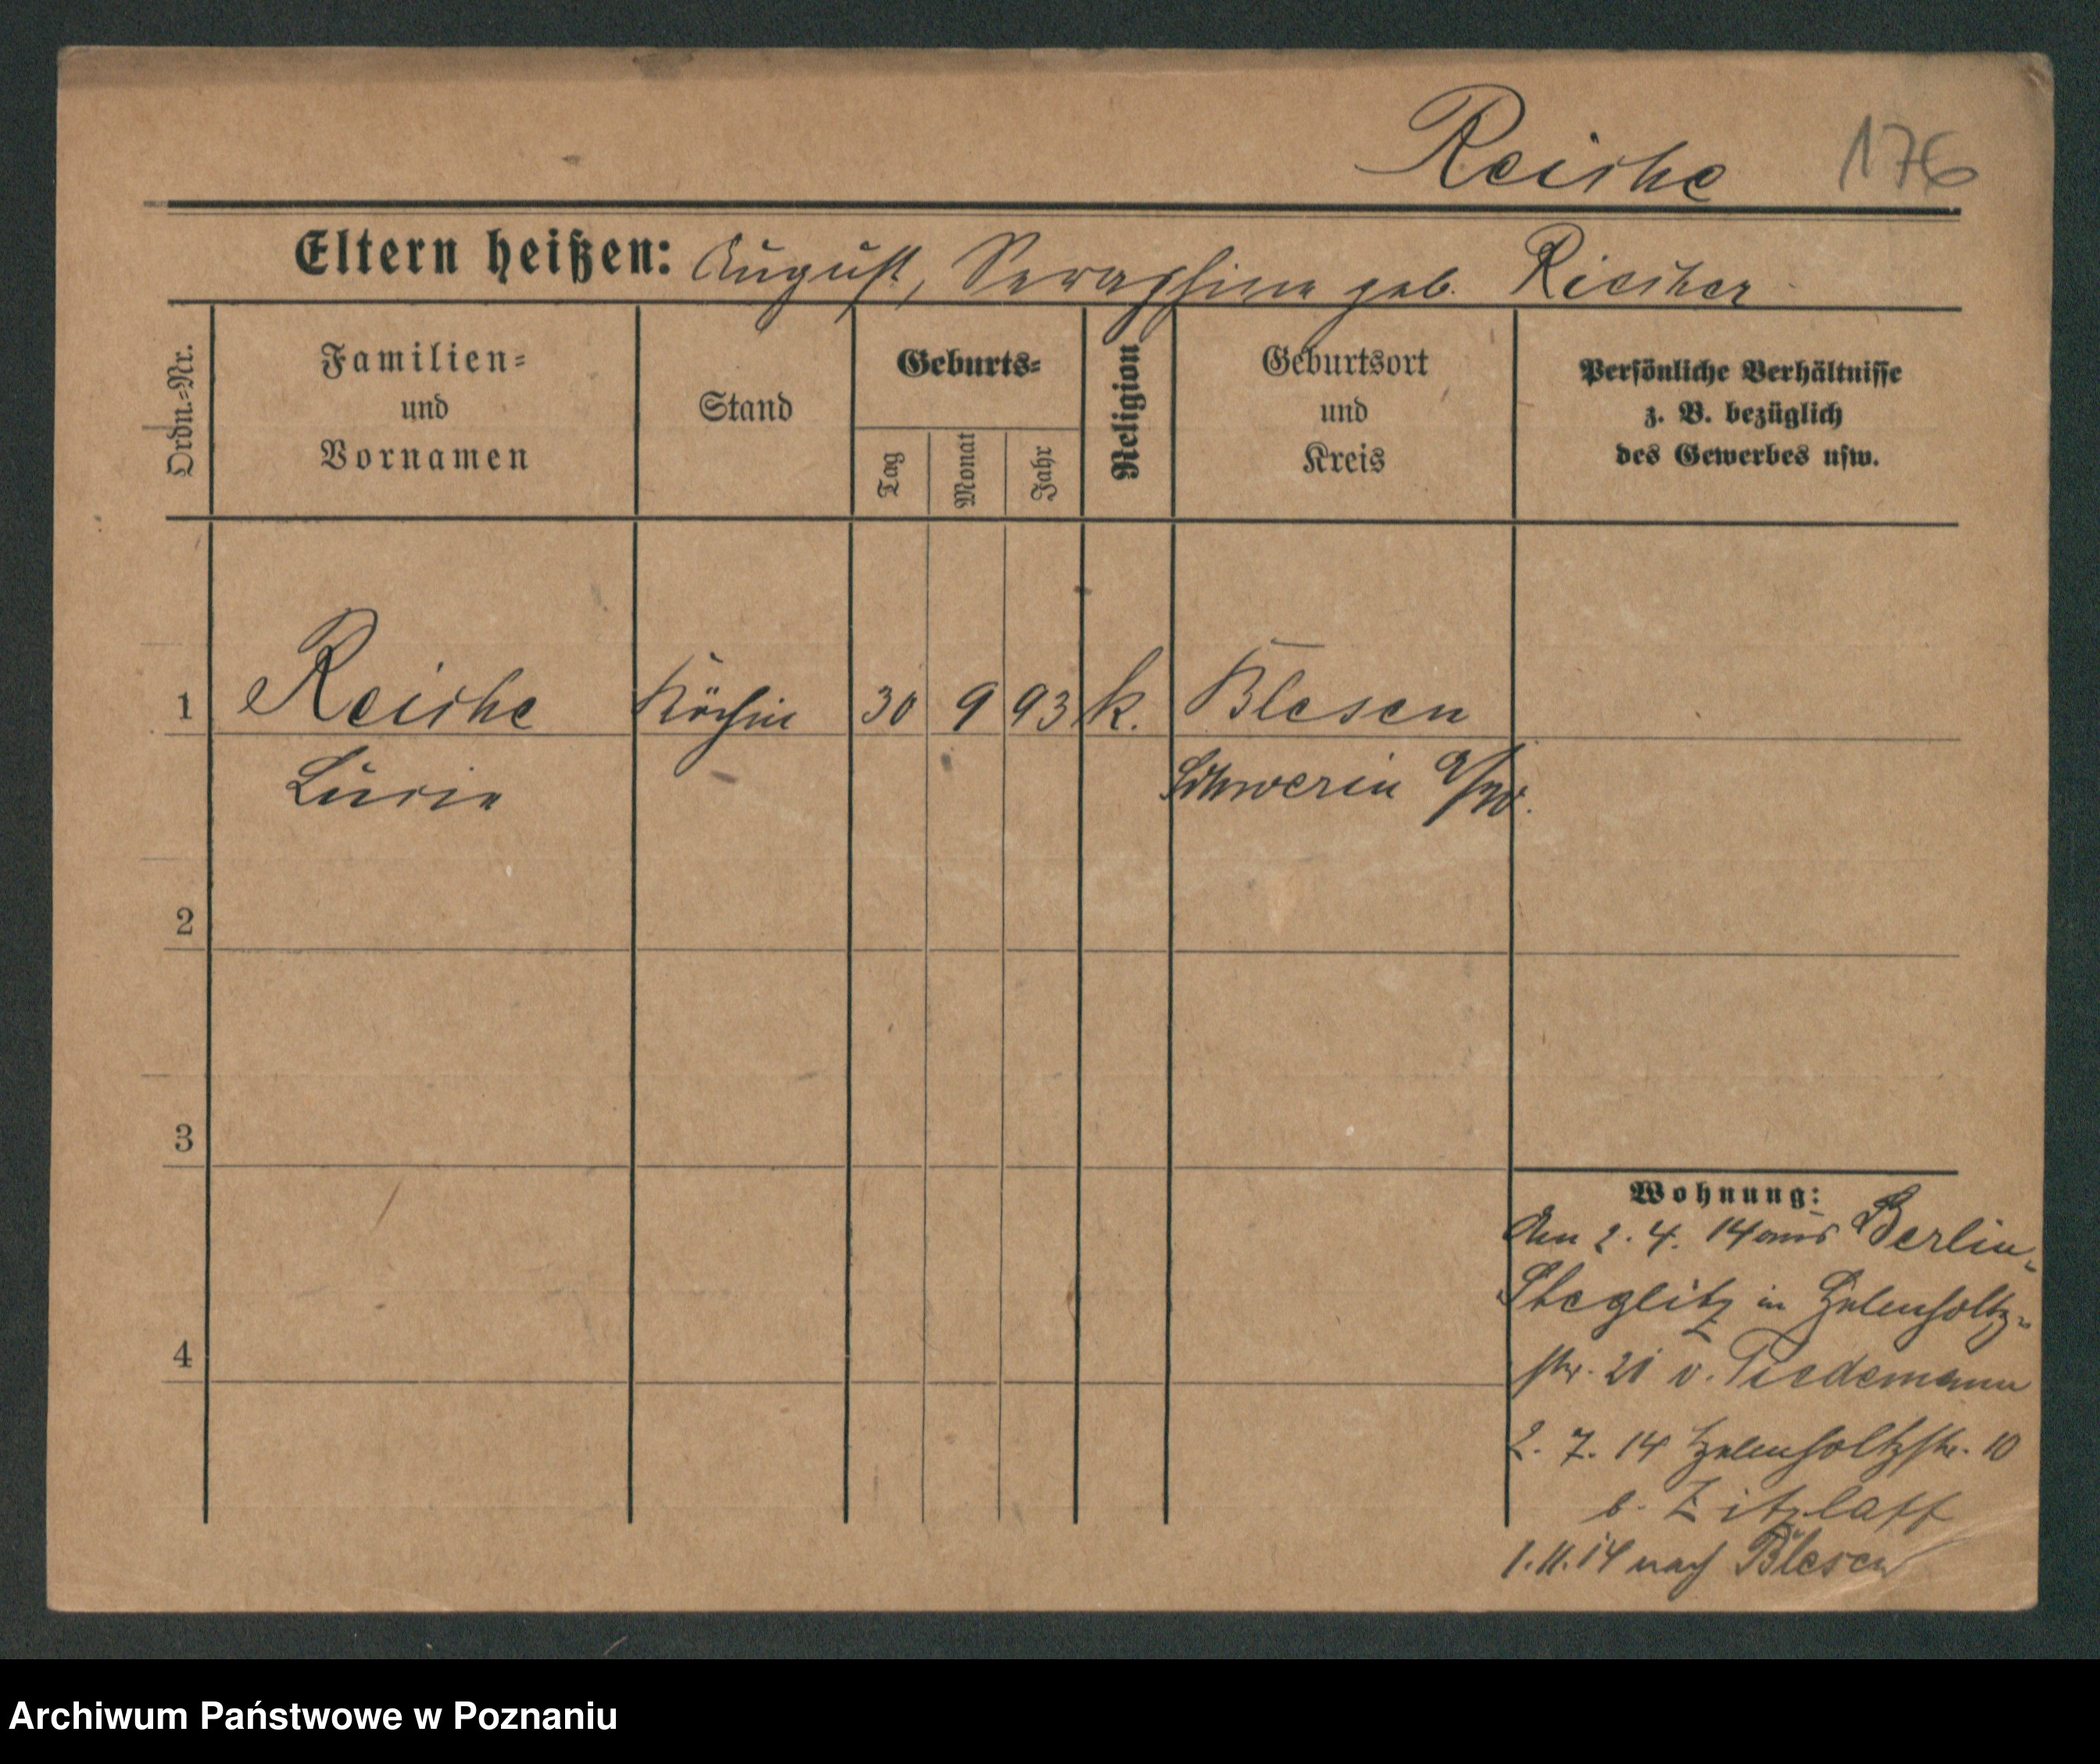 Reiche 176
Eltern heißen: August, Seraphine geb. Riecher
Ordn.-Nr.
Familien-
und
Vornamen
Stand
Geburts-
Tag
Monat
Jahr
Religion
Geburtsort
und
Kreis
Persönliche Verhältnisse
z. B. bezüglich
des Gewerbes usw.
1 Reiche Köchin 30 9 93 k. Blesen
Lucie Schwerin a/W.
2
3
4
Wohnung:
Am 2. 4. 14 aus Berlin-
Steglitz in
str. 21 v. Tiedemann
2. 7. 14 10
b. Zitzlaff
1.11.14 nach Blesen
Archiwum Państwowe w Poznaniu